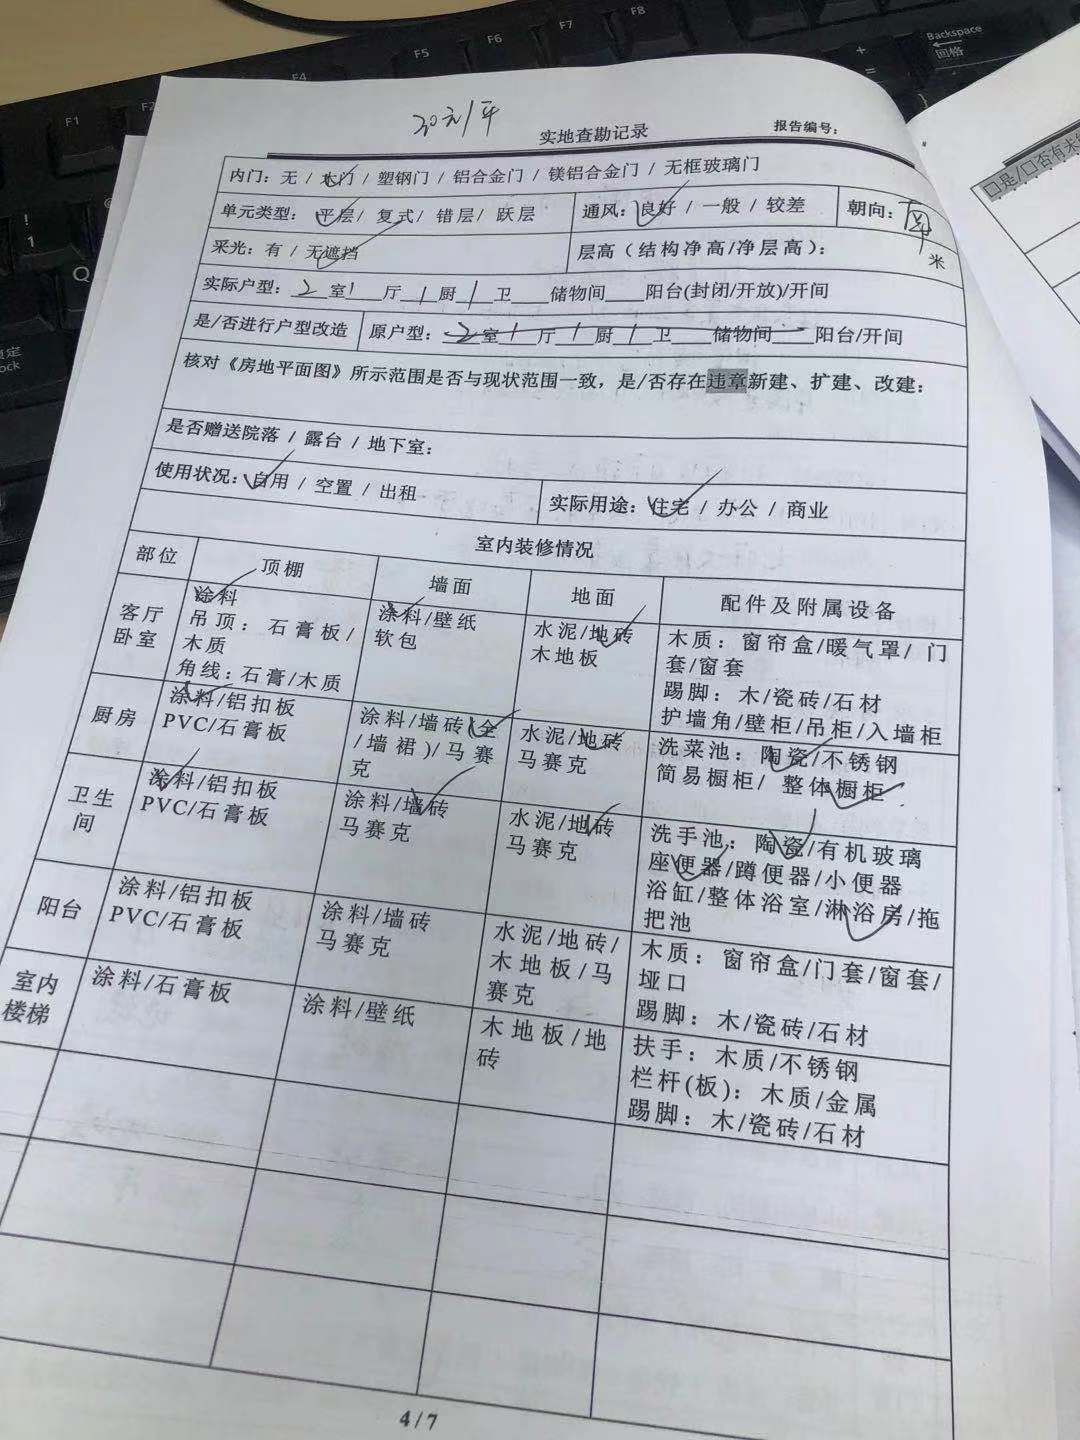 F1
F4
F5
F6
F7
F8
Backspace
回格
+
=
!
1
Q
锁定
ock
30元/平
实地查勘记录
报告编号：
□是/□否有未
内门：无 / 木门 / 塑钢门 / 铝合金门 / 镁铝合金门 / 无框玻璃门
单元类型： 平层/ 复式/ 错层/ 跃层 通风：良好 / 一般 / 较差 朝向：南
采光：有 / 无遮挡 层高（结构净高/净层高）： 米
实际户型：2室1厅1厨1卫___储物间___阳台(封闭/开放)/开间
是/否进行户型改造 原户型：2室1厅1厨1卫___储物间___阳台/开间
核对《房地平面图》所示范围是否与现状范围一致，是/否存在违章新建、扩建、改建：
是否赠送院落 / 露台 / 地下室：
使用状况：自用 / 空置 / 出租 实际用途：住宅 / 办公 / 商业
室内装修情况
部位 顶棚 墙面 地面 配件及附属设备
客厅
卧室
涂料
吊顶：石膏板/
木质
角线：石膏/木质
涂料/壁纸
软包
水泥/地砖
木地板
木质：窗帘盒/暖气罩/ 门
套/窗套
踢脚：木/瓷砖/石材
护墙角/壁柜/吊柜/入墙柜
厨房
涂料/铝扣板
PVC/石膏板
涂料/墙砖(全
/墙裙)/马赛
克
水泥/地砖
马赛克
洗菜池：陶瓷/不锈钢
简易橱柜/ 整体橱柜
卫生
间
涂料/铝扣板
PVC/石膏板
涂料/墙砖
马赛克
水泥/地砖
马赛克
洗手池：陶瓷/有机玻璃
座便器/蹲便器/小便器
浴缸/整体浴室/淋浴房/拖
把池
阳台
涂料/铝扣板
PVC/石膏板
涂料/墙砖
马赛克
水泥/地砖/
木地板/马
赛克
木质：窗帘盒/门套/窗套/
垭口
踢脚：木/瓷砖/石材
室内
楼梯
涂料/石膏板
涂料/壁纸
木地板/地
砖
扶手：木质/不锈钢
栏杆(板)：木质/金属
踢脚：木/瓷砖/石材
4/7